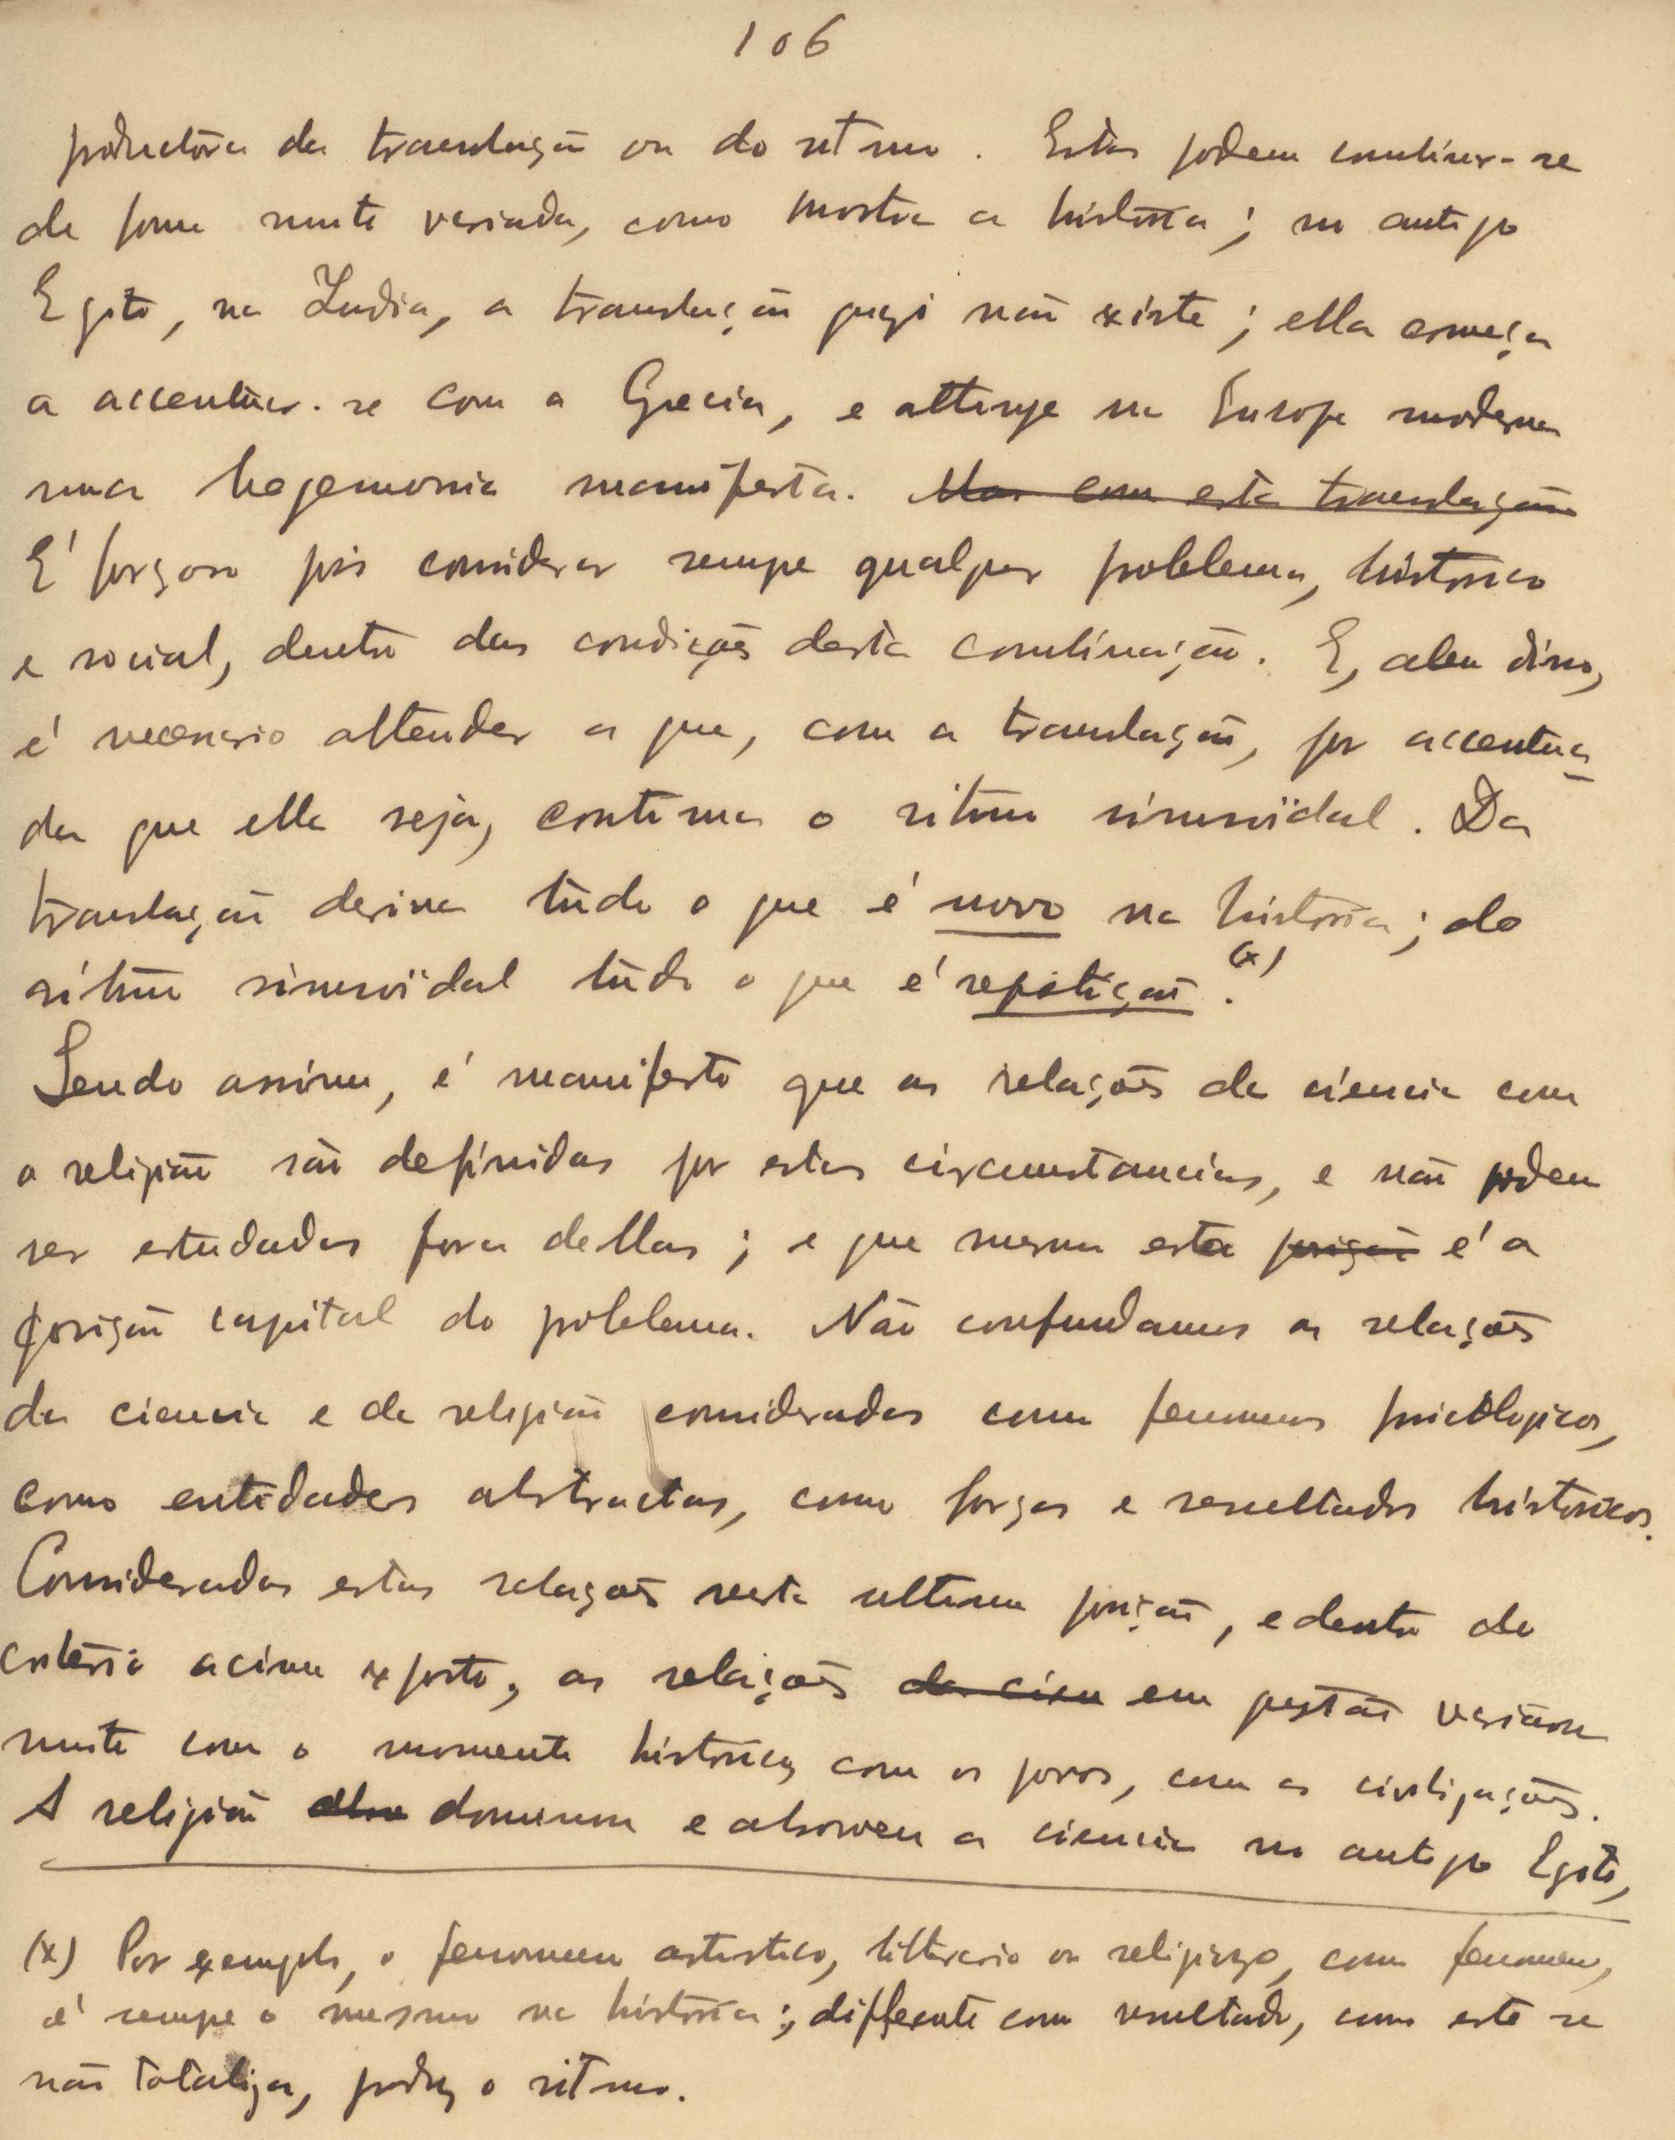 106
productora da translação ou do ritmo. Estas podem combinar-se
de forma muito variada, como mostra a historia; no antigo
Egito, na India, a translação quasi não existe; ella começa
a accentuar-se com a Grecia, e attinge na Europa moderna
uma hegemonia manifesta. Mas com esta translação
E' forçoso pois considerar sempre qualquer problema, historico
e social, dentro das condições desta combinação. E, alem disso,
é necessario attender a que, com a translação, por accentua
da que ella seja, continua o ritmo sinusoïdal. Da
translação deriva tudo o que é novo na historia; do
ritmo sinusoïdal tudo o que é repetição. (x)
Sendo assim, é manifesto que as relações da ciencia com
a religião são definidas por estas circumstancias, e não podem
ser estudadas fora dellas; e que mesmo esta posição é a
posição capital do problema. Não confundamos as relações
da ciencia e da religião consideradas como fenomenos psicologicos,
como entidades abstractas, como forças e resultados historicos.
Consideradas estas relações nesta ultima posição, e dentro do
criterio acima exposto, as relações da cien em questão variam
muito com o momento historico, com os povos, com as civilizações.
A religião abso dominou e absorveu a ciencia no antigo Egito,
(x) Por exemplo, o fenomeno artistico, litterario ou religioso, como fenomeno,
é sempre o mesmo na historia; differente como resultado, como este se
não totaliza, produz o ritmo.